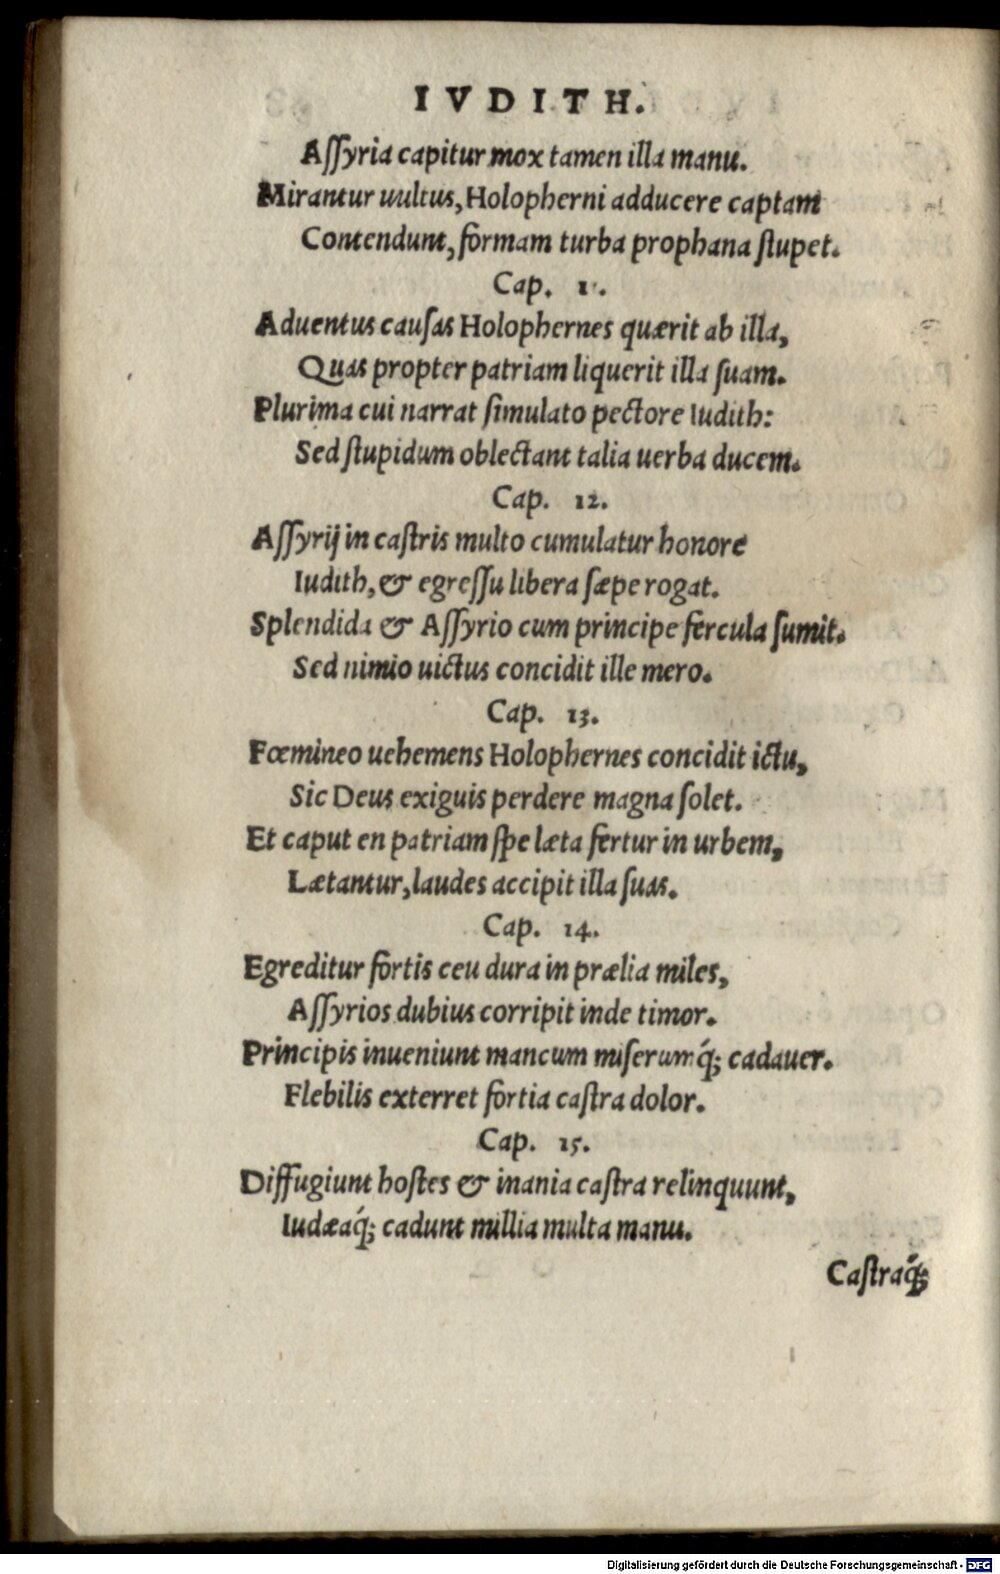 IVDITH.
Aſſyria capitur mox tamen illa manu.
Mirantur uultus, Holopherni adducere captam
Contendunt, formam turba prophana ſtupet.
Cap. 1.
Aduentus cauſas Holophernes quærit ab illa,
Quas propter patriam liquerit illa ſuam.
Plurima cui narrat ſimulato pectore Iudith:
Sed ſtupidum oblectant talia uerba ducem.
Cap. 12.
Aſſyrij in caſtris multo cumulatur honore
Iudith, & egreſſu libera ſæpe rogat.
Splendida & Aſſyrio cum principe fercula ſumit.
Sed nimio uictus concidit ille mero.
Cap. 13.
Fœmineo uehemens Holophernes concidit ictu,
Sic Deus exiguis perdere magna ſolet.
Et caput en patriam ſpe læta fertur in urbem,
Lætantur, laudes accipit illa ſuas.
Cap. 14.
Egreditur fortis ceu dura in prælia miles,
Aſſyrios dubius corripit inde timor.
Principis inueniunt mancum miſerumq́; cadauer.
Flebilis exterret fortia caſtra dolor.
Cap. 15.
Diffugiunt hoſtes & inania caſtra relinquunt,
Iudæaq́; cadunt millia multa manu.
Caſtraq́;
Digitalisierung gefördert durch die Deutsche Forschungsgemeinschaft - DFG